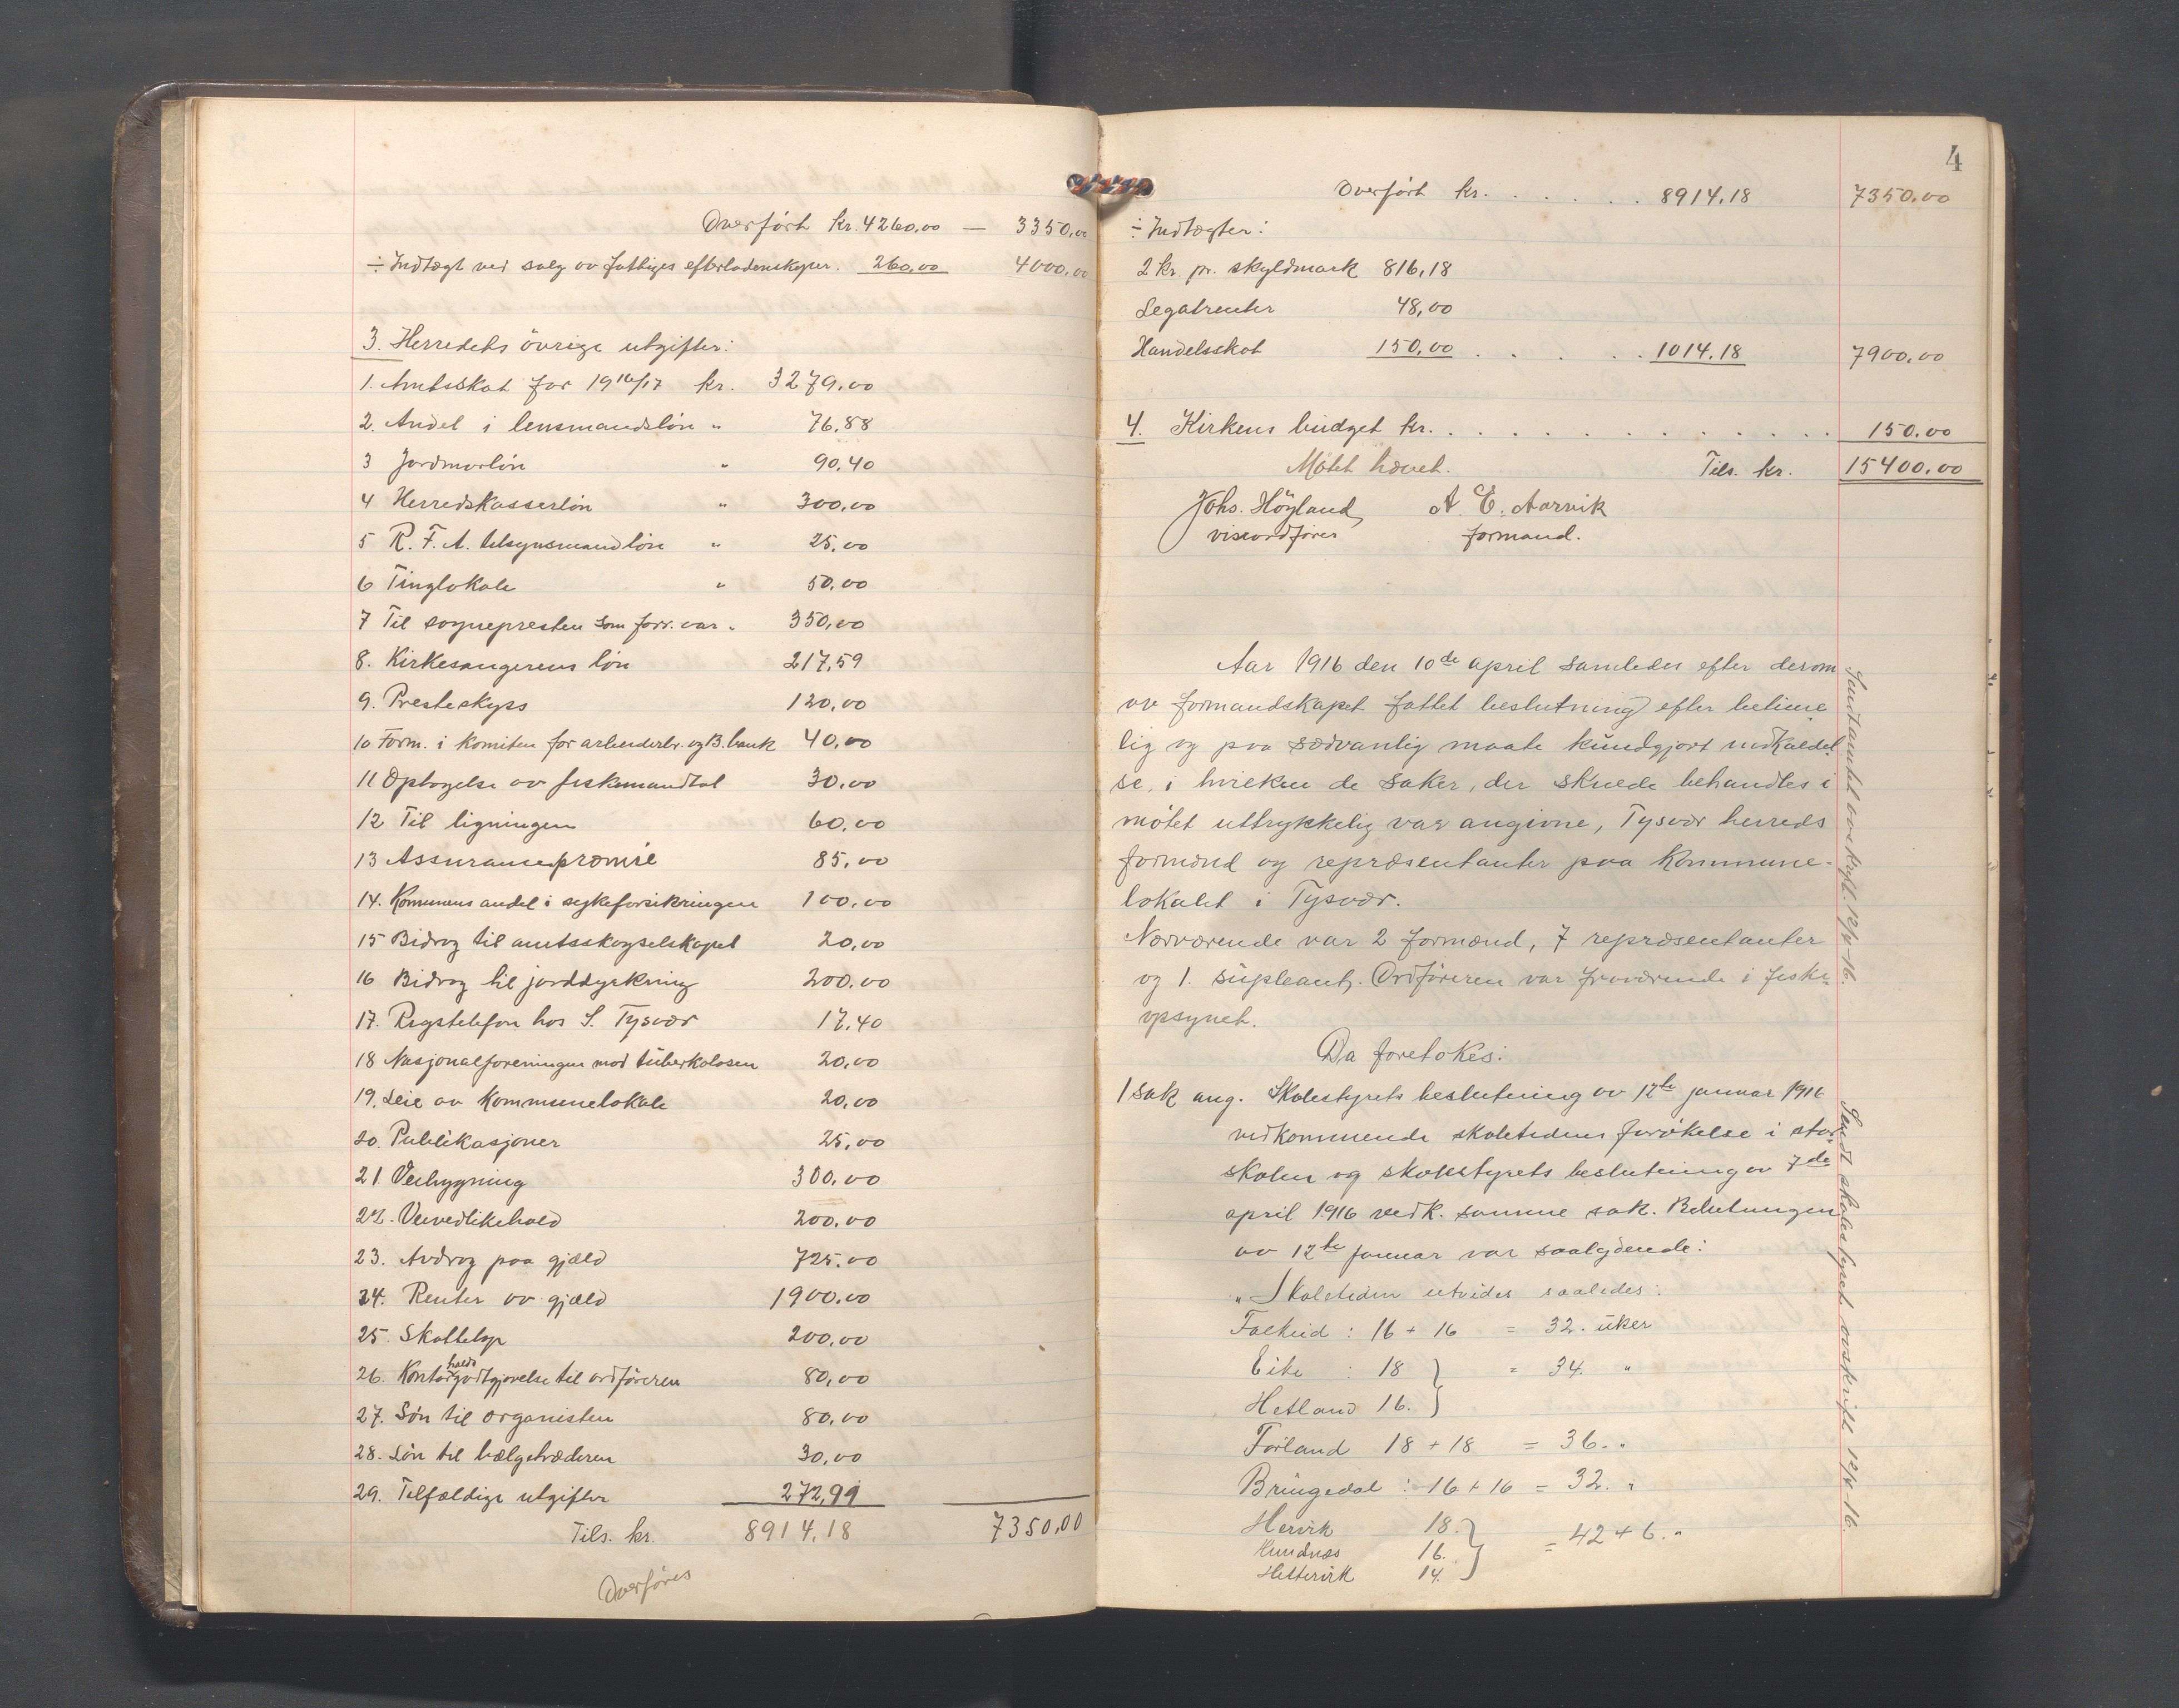 Overført Kr. 4260,00 — 3350,00
÷ Indtægt ved salg av fattiges efterladenskaper. 260,00 4000,00
3. Herredets övrige utgifter:
1. Amtsskat for 1916/17 kr. 3279,00
2. Andel i lensmandsløn " 76,88
3 Jordmorløn " 90,40
4 Herredskasserløn " 300,00
5 R. F. A. tilsynsmandløn " 25,00
6 Tinglokale " 50,00
7 Til sognepresten som forr. var " 350,00
8. Kirkesangerens løn 217,59
9. Presteskyss 120,00
10 Form. i komiten for arbeiderbr. og B. bank 40,00
11 Optagelse av fiskemandtal 30,00
12 Til ligningen 60,00
13 Assurancepræmie 85,00
14. Kommunens andel i sykeforsikringen 100,00
15 Bidrag til amtsskogselskapet 20,00
16 Bidrag til jorddyrkning 200,00
17. Rigstelefon hos S. Tysvær 17,40
18 Nasjonalforeningen mod tuberkolosen 20,00
19. Leie av Kommunelokale 20,00
20. Publikasjoner 25,00
21 Veibygning 300,00
22. Veivedlikehold 200,00
23. Avdrag paa gjæld 725,00
24. Renter av gjæld 1900,00
25. Skattetap 200,00
26. Kontorholdsgodtgjørelse til ordføreren 80,00
27. Løn til organisten 80,00
28. Løn til bælgetræderen 30,00
29. Tilfældige utgifter 272,91
Tils. kr. 8914,18 7350,00
Overføres
4
Overført kr. . . . . . 8914,18 7350,00
÷ Indtægter:
2 kr. pr. skyldmark 816,18
Legatrenter 48,00
Handelsskat 150,00 . . . . 1014,18 7900,00
4. Kirkens budget kr. . . . . . . . . . . . . 150,00
Møtet hævet. Tils. kr. 15400,00
Johs. Höyland A. E. Aarvik
viseordfører formand.
Aar 1916 den 10de april samledes efter derom
av formandskapet fattet beslutning efter betime
lig og paa sædvanlig maate kundgjort indkaldel
se, i hvilken de saker, der skulde behandles i
møtet uttrykkelig var angivne, Tysvær herreds
formænd og repræsentanter paa Kommune-
lokalet i Tysvær.
Nærværende var 2 formænd, 7 repræsentanter
og 1. supleant. Ordføreren var fraværende i fiske-
opsynet.
Da foretokes:
1 sak ang. Skolestyrets beslutning av 12te januar 1916
vedkommende skoletidens forøkelse i stor
skolen og skolestyrets beslutning av 7de
april 1916 vedk. samme sak. Beslutningen
av 12te januar var saalydende:
"Skoletiden utvides saaledes:
Falkeid : 16 + 16 = 32. uker
Eike : 18 } = 34. "
Hetland 16. }
Førland 18 + 18 = 36. "
Bringedal : 16 + 16 = 32. "
Hervik 18. }
Hundnæs 16. } = 42 + 6. "
Hettervik 14. }
Sendt amtet avskrift. 12/4-16.
Sendt skolestyret avskrift 12/4-16.